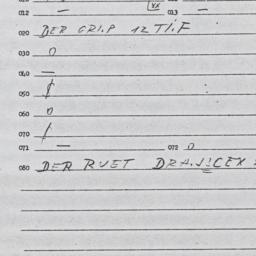 012 — XX 013 —
020 DER GRIP 12 TIF
030 0
040 —
050
060 0
070 /
071 — 072 0
080 DER RUET